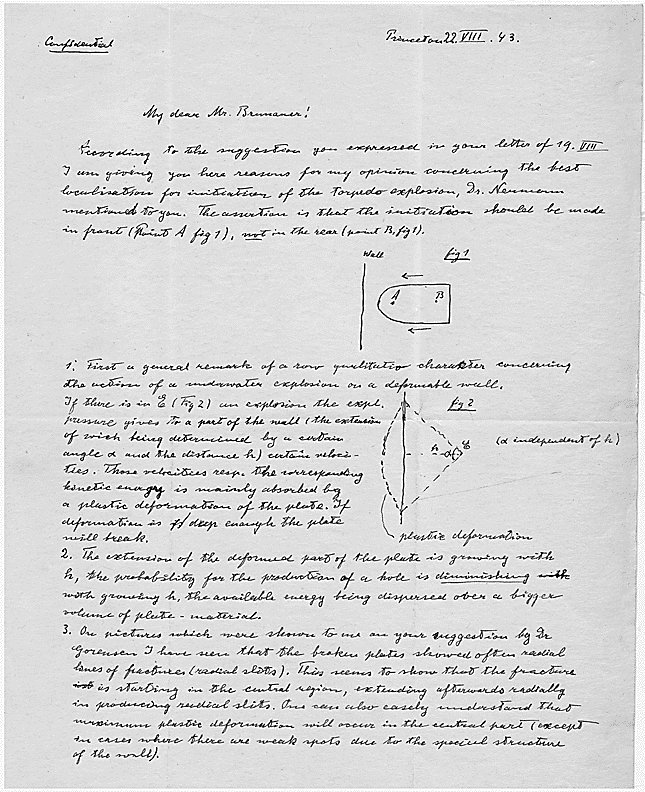 Confidential
Princeton 22. VIII. 43.
My dear Mr. Brunauer!
According to the suggestion you expressed in your letter of 19. VIII
I am giving you here reasons for my opinion concerning the best
localisation for initiation of the torpedo explosion, Dr. Neumann
mentioned to you. The assertion is that the initiation should be made
in front (Point A fig 1), not in the rear (point B, fig 1).
Wall
fig 1
A
B
1. First a general remark of a row qualitativ character concerning
the action of a underwater explosion on a deformable wall.
If there is in E (Fig 2) an explosion the expl.
pressure gives to a part of the wall (the extension
of wich being determined by a certain
angle α and the distance h) certain veloci-
ties. Those velocities resp. the corresponding
kinetic energy is mainly absorbed by
a plastic deformation of the plate. If
deformation is deep enough the plate
will break.
fig 2
h
α
E
(α independent of h)
plastic deformation
2. The extension of the deformed part of the plate is growing with
h, the probability for the production of a hole is diminishing with
with growing h, the available energy being dispersed over a bigger
volume of plate-material.
3. On pictures which were shown to me on your suggestion by Dr
Sorensen I have seen that the broken plates showed often radial
lines of fractures (radial slits). This seems to show that the fracture
is starting in the central region, extending afterwards radially
in producing radial slits. One can also easely understand that
maximum plastic deformation will occur in the central part (except
in cases where there are weak spots due to the special structure
of the wall).